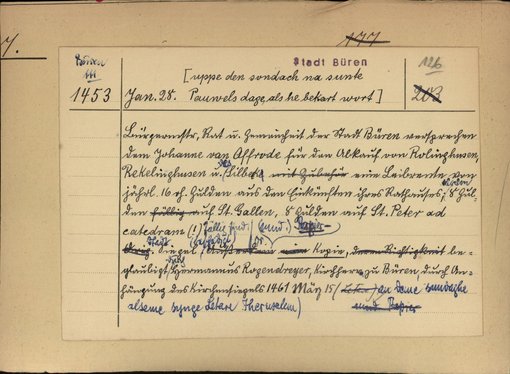 7.
177
Büren
III
Stadt Büren
126
203
1453
[uppe den sondach na sunte
Jan. 28. Pauwels dage, als he bekart wort]
Bürgermstr., Rat u. Gemeinheit der Stadt Büren versprechen
dem Johanne van Affrode für den Abkauf von Rolinghusen,
Rekelinghusen u. Silberg mit Zubehör eine Leibrente von
jährl. 16 rh. Gulden aus den Einkünften ihres Rathauses; 8 Gul-
den fällig auf St. Gallen, 8 Gulden auf St. Peter ad
catedram (!) fällig sind.
Stadt Siegel Kopie, deren Richtigkeit be-
glaubigt Hermannus Rogendreyer, Kirchherr zu Büren, durch An-
hängung des Kirchensiegels 1461 März 15 (Letare) an deme sundaghe
alseme synge Letare Jherusalem)
und Papier